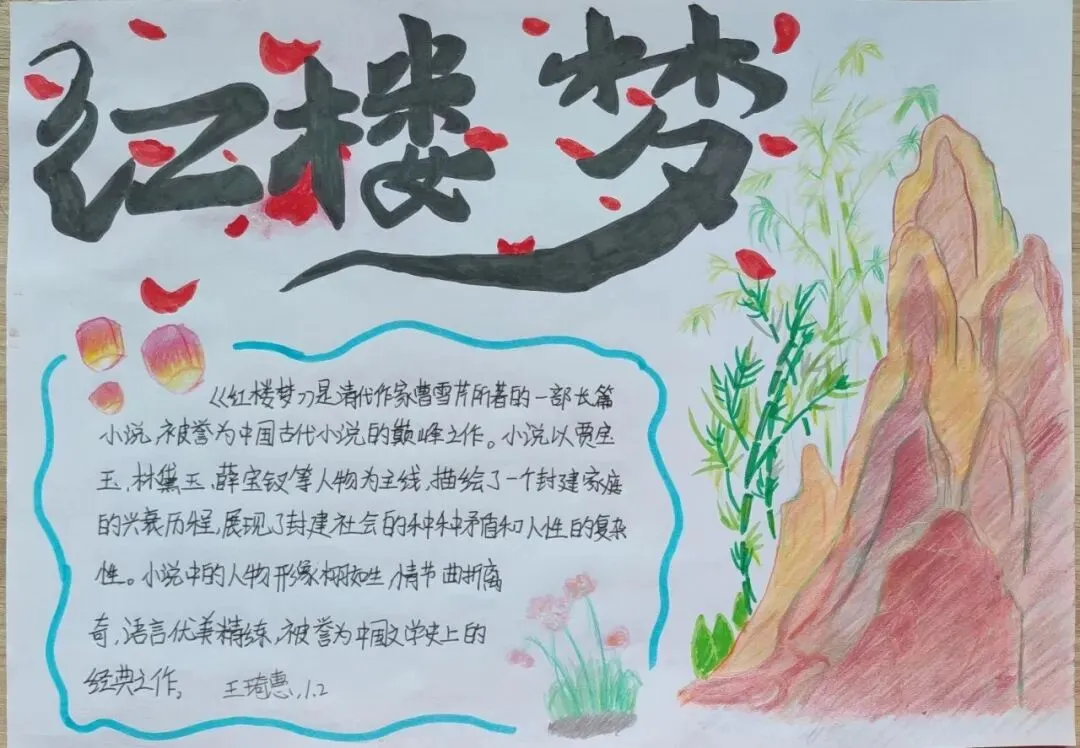 红楼梦
《红楼梦》是清代作家曹雪芹所著的一部长篇
小说,被誉为中国古代小说的巅峰之作。小说以贾宝
玉、林黛玉、薛宝钗等人物为主线,描绘了一个封建家庭
的兴衰历程,展现了封建社会的种种矛盾和人性的复杂
性。小说中的人物形象栩栩如生,情节曲折离
奇,语言优美精练,被誉为中国文学史上的
经典之作。 王琦惠,1.2